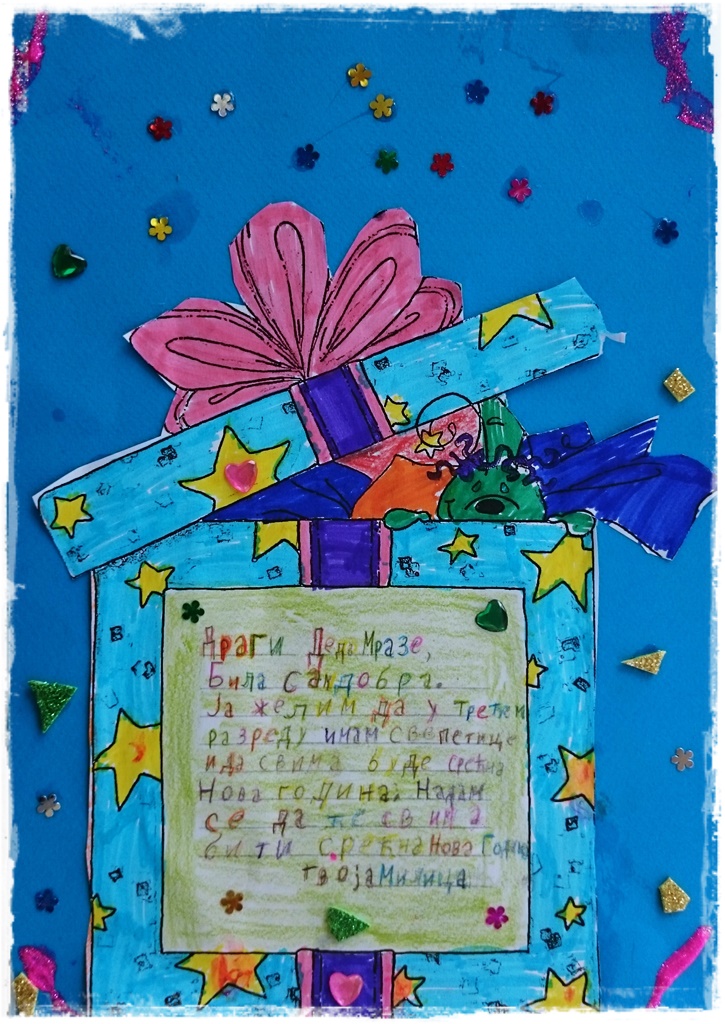 Драги Деда Мразе,
Била сам добра.
Ја желим да у трећем
разреду имам све петице
и да свима буде срећна
Нова година. Надам
се да ће свима
бити срећна Нова Година
твоја Милица